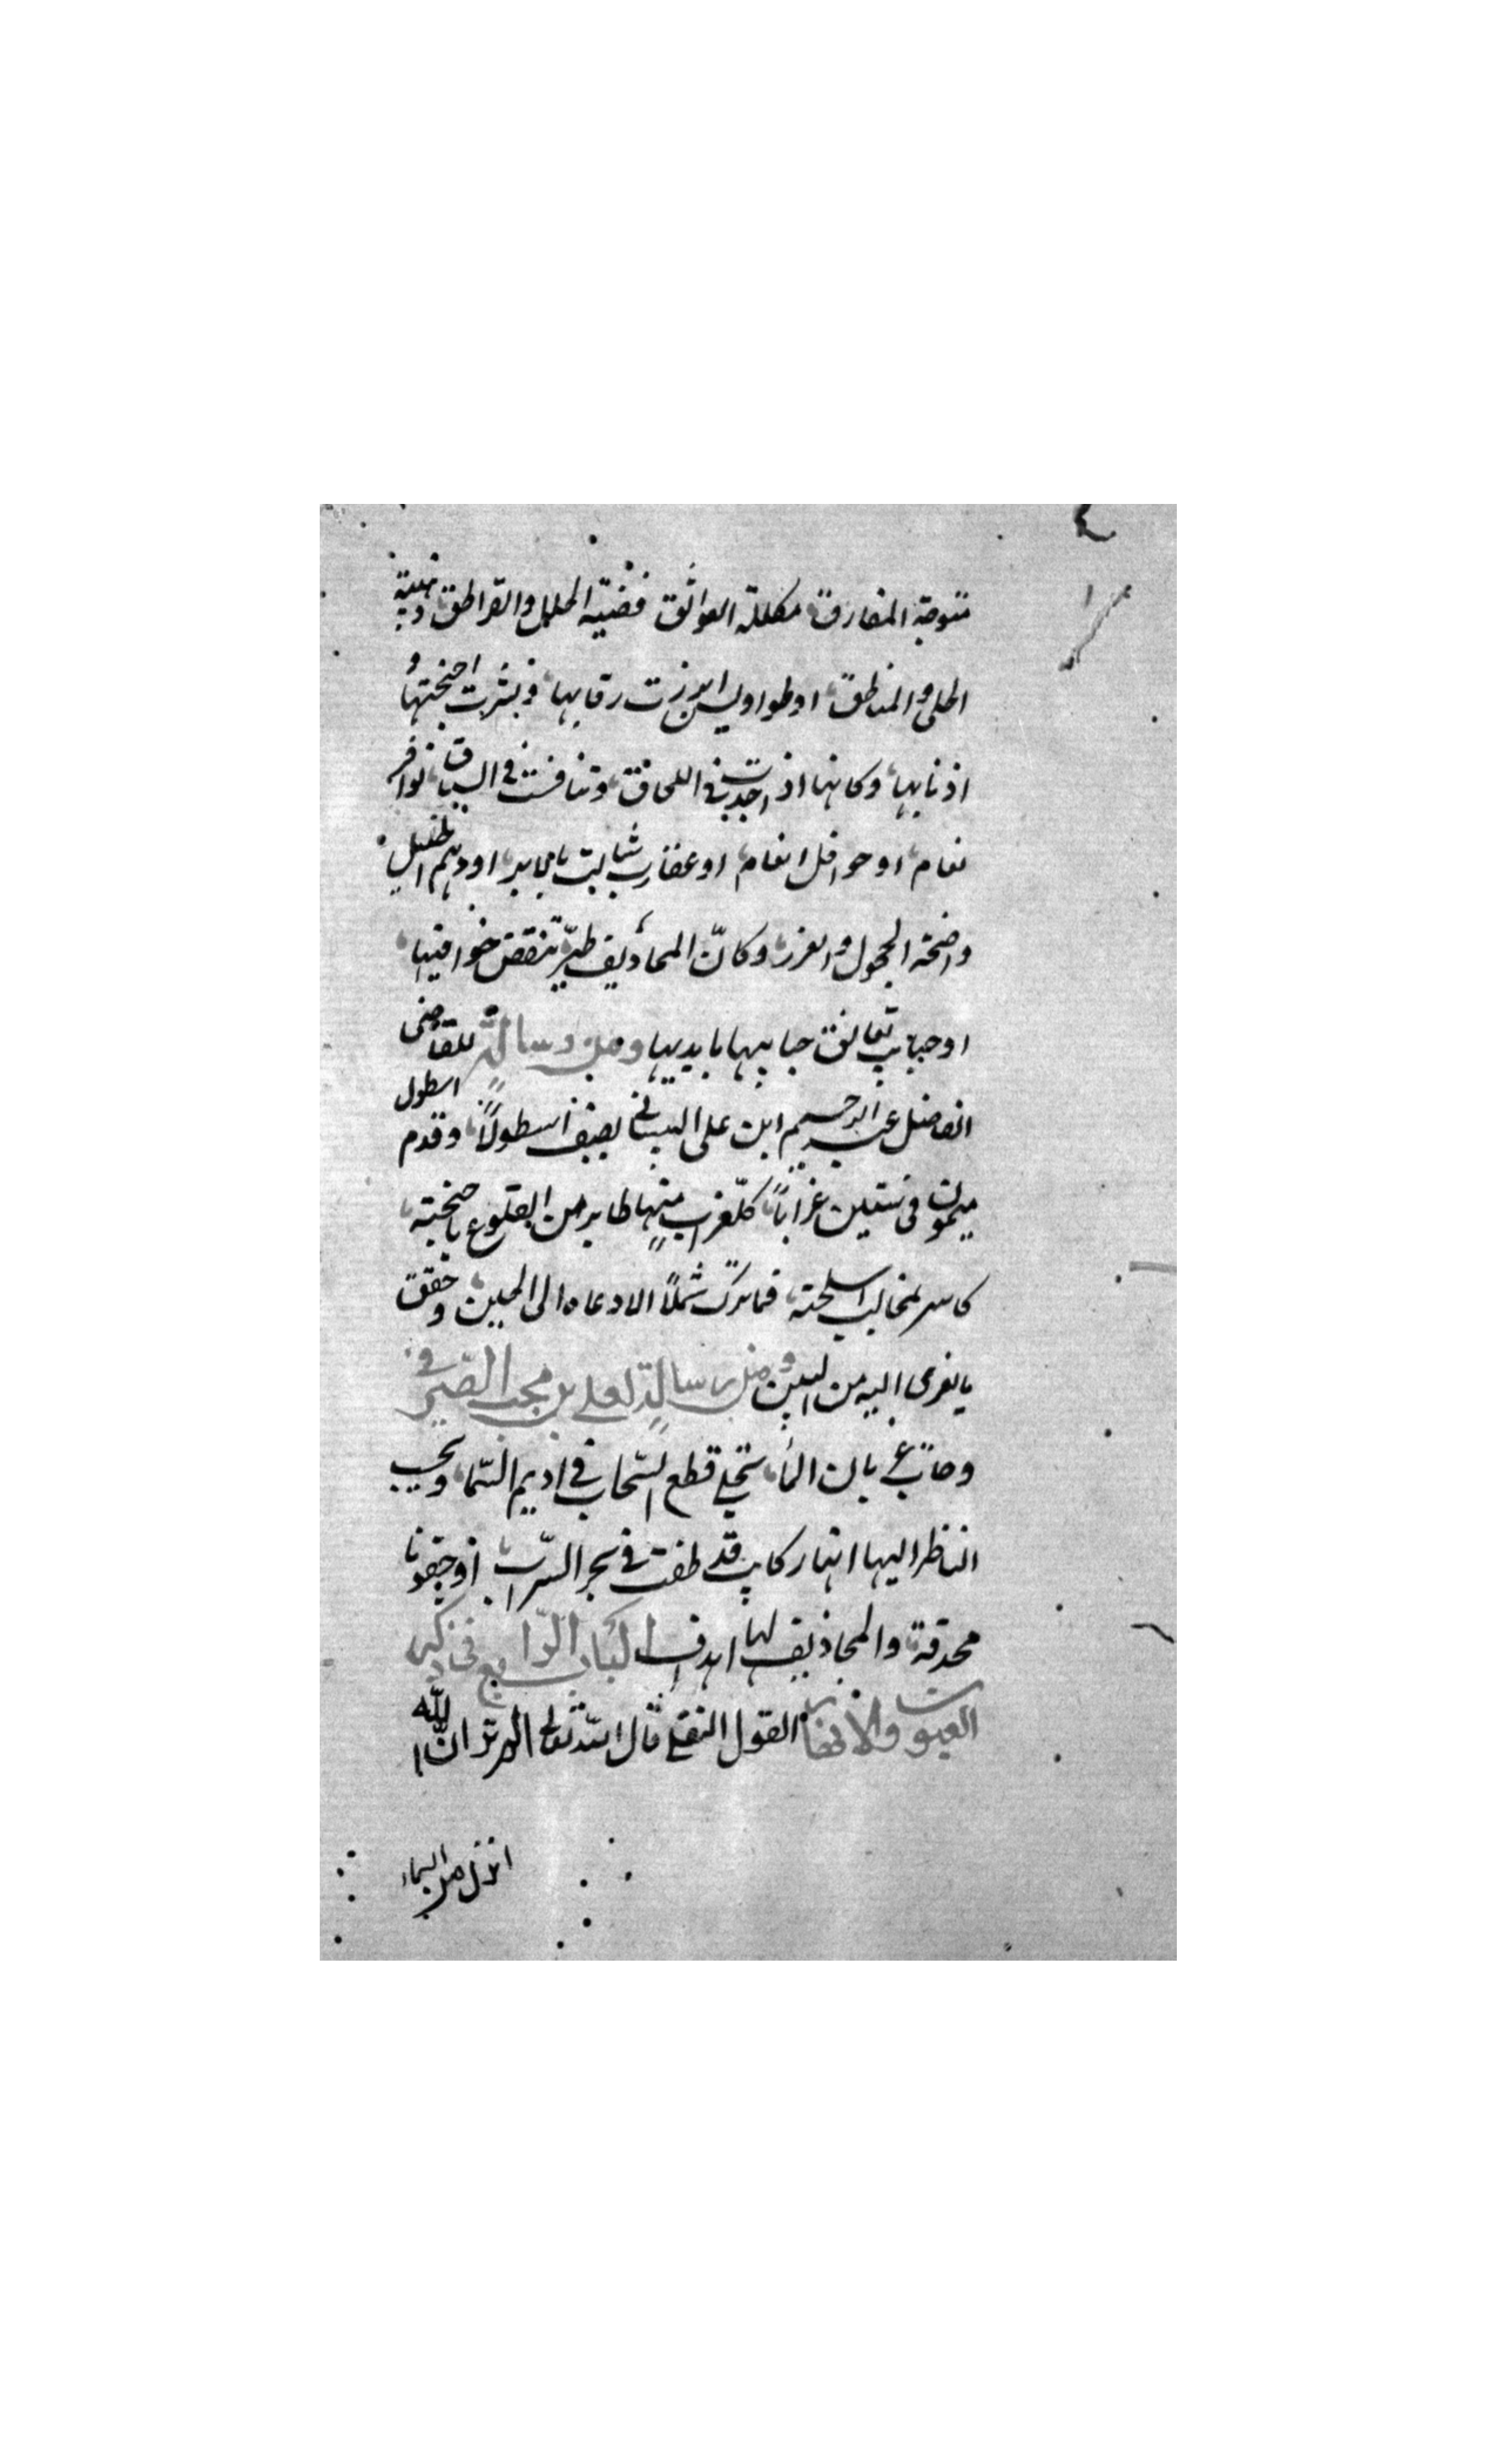 متوجة المفارق مكللة العواتق فضية الحلل والقراطق ذهبية
الحلى والمناطق او طواويس ابرزت رقابها ونشرت اجنحتها و
اذنابها وكانها اذ اجدت فى اللحاق وتنافست فى السباق نوافر
نعام او حوافل انعام او عقارب شالت بابر او دهم الخيل
واضحة الحجول والغرر وكانّ المحاذيف طير تنقض خوافيها
او حبايب تعانق حبايبها بايديها ومن رسالة للقاضى
الفاضل عبد الرحيم ابن على البيسانى يصف اسطولاً وقدم اسطول
ميمون فى ستين غراباً كلّ غراب منها طاير من القلوع باجنحته
كاسر بمخالب اسلحته فما ترك شملاً الا دعاه الى الحين وحقق
ما يغرى اليه من البين ومن رسالة لعلى بن محمد الصيرفى
بان الماء قطع السّحاب فى اديم السّماء ويحسب
الناظر اليها انها ركايب قد طفت فى بحر السّراب او جفونا
محدقة والمجاذيف لها اهداب الباب الرّابع فى ذكر
العيون والانهار القول النقلى قال الله تعالى الم تر انّ الله
انزل من السماء